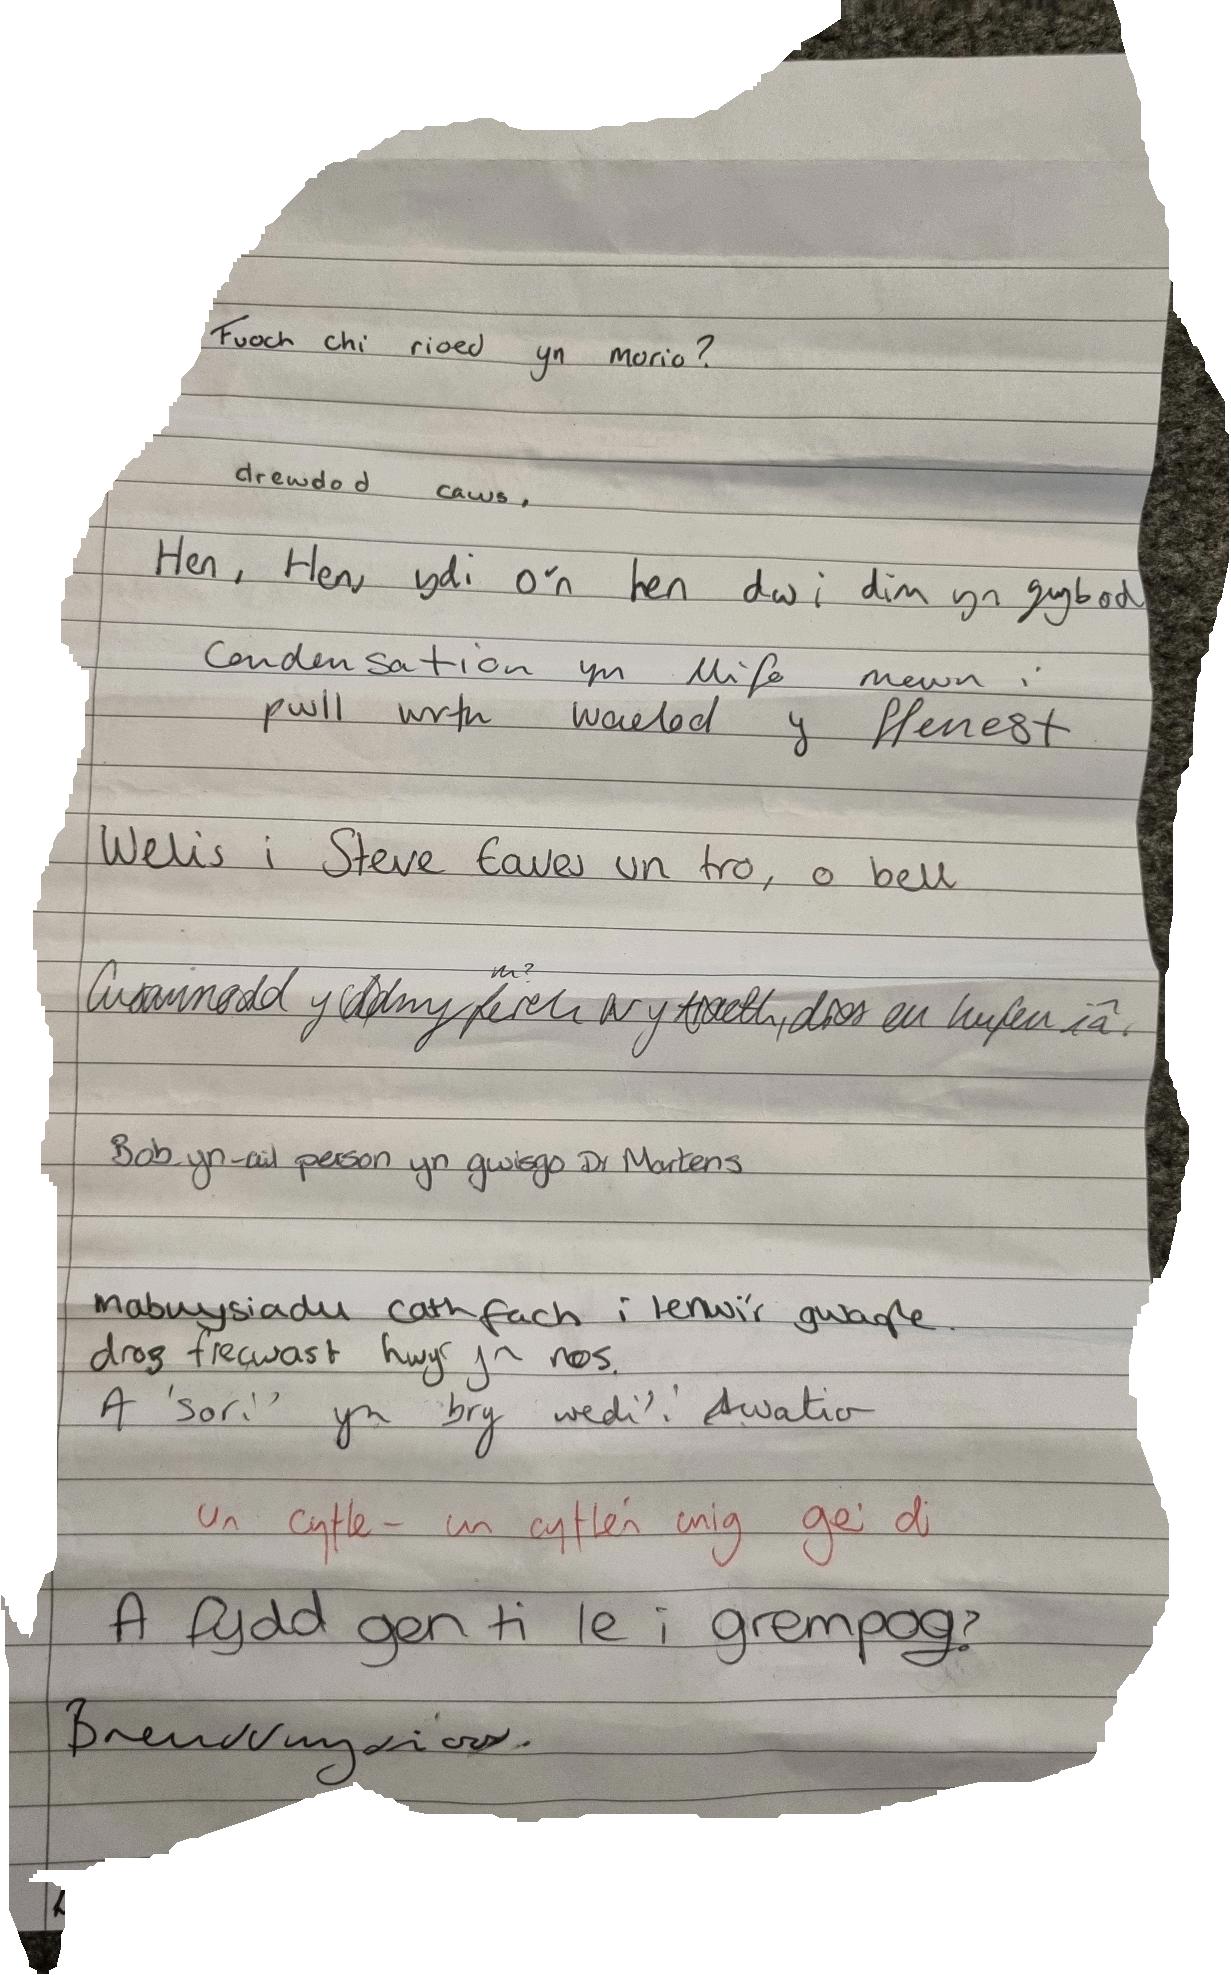 Fuoch chi rioed yn morio?
drewdod caws,
Hen, Hen, ydi o'n hen dwi dim yn gwybod
Condensation yn llifo mewn i
pwll wrth waelod y ffenest
Welis i Steve Eaves un tro, o bell
y ferch ar y traeth, dros eu hufen iâ.
m?
Bob yn-ail person yn gwisgo Dr Martens
mabwysiadu cath fach i lenwi'r gwagle.
dros frecwast hwyr yn nos.
A 'sori' yn bry wedi'i swatio
un cyfle - un cyfle'n unig gei di
A fydd gen ti le i grempog?